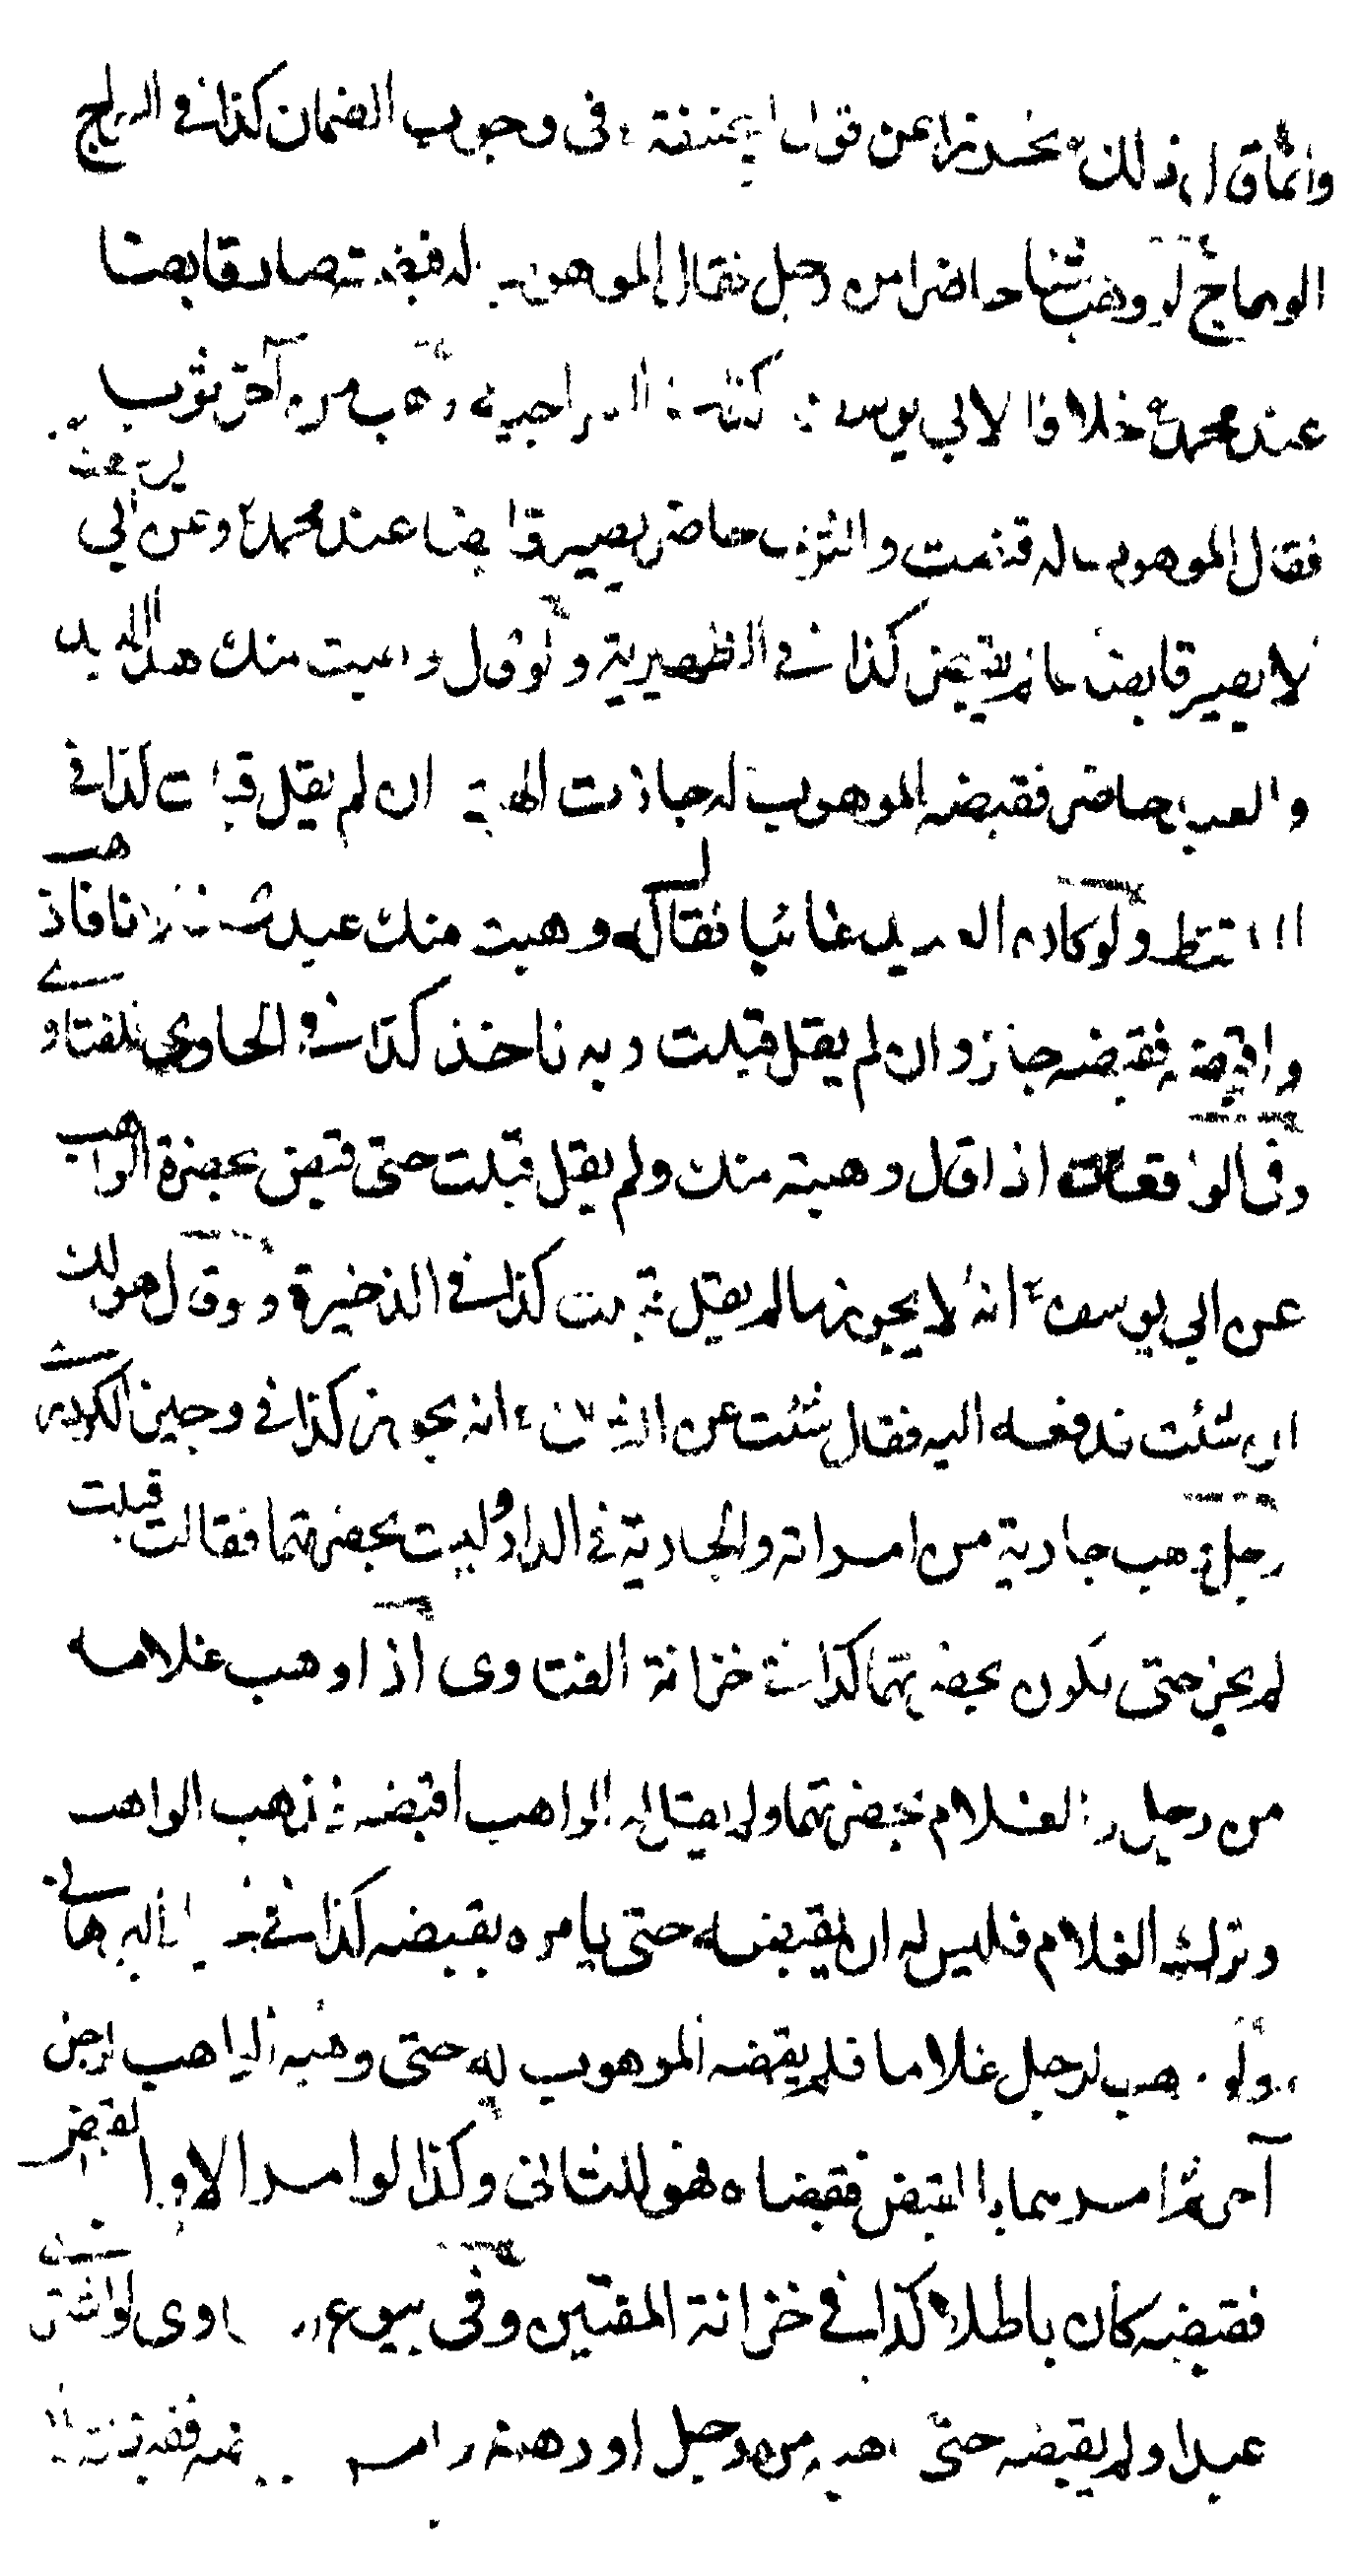 وانما قال ذلك تحرزا عن قول ابي حنيفة في وجوب الضمان كذا في السراج
الوهاج لو وهب شيئا حاضرا من رجل فقال الموهوب له قبضته صار قابضا
عند محمد خلافا لابي يوسف كذا في السراجية وهب من آخر ثوبا
فقال الموهوب له قبضت والثوب حاضر يصير قابضا عند محمد وعن ابي يوسف
لا يصير قابضا ما لم يقبض كذا في الظهيرية ولو قال وهبت منك هذا العبد
والعبد حاضر فقبضه الموهوب له جازت الهبة وان لم يقل قبلت كذا في
الملتقط ولو كان العبد غائبا فقال له وهبت منك عبدي فلانا فاذهب
واقبضه فقبضه جاز وان لم يقل قبلت وبه ناخذ كذا في الحاوي للفتاوي
وفي الواقعات اذا قال وهبته منك ولم يقل قبلت حتى قبض بحضرة الواهب
عن ابي يوسف انه لا يجوز ما لم يقل قبلت كذا في الذخيرة ولو قال هو لك
ان شئت فدفعه اليه فقال شئت عن الثاني انه يجوز كذا في وجيز الكردري
رجل وهب جارية من امراته والجارية في الدار وليست بحضرتهما فقالت قبلت
لم يجز حتى يكون بحضرتهما كذا في خزانة الفتاوى اذا وهب غلامه
من رجل والغلام بحضرتهما ولم يقل له الواهب اقبضه فذهب الواهب
وترك الغلام فليس له ان يقبضه حتى يامره بقبضه كذا في البرهاني
ولو وهب لرجل غلاما فلم يقبضه الموهوب له حتى وهبه الواهب لرجل
آخر ثم امرهما بالقبض فقبضاه فهو للثاني وكذا لو امر الاول بالقبض
فقبضه كان باطلا كذا في خزانة المفتين وفي بيوع الفتاوى لو اشترى
عبدا ولم يقبضه حتى وهبه من رجل او رهنه وامره